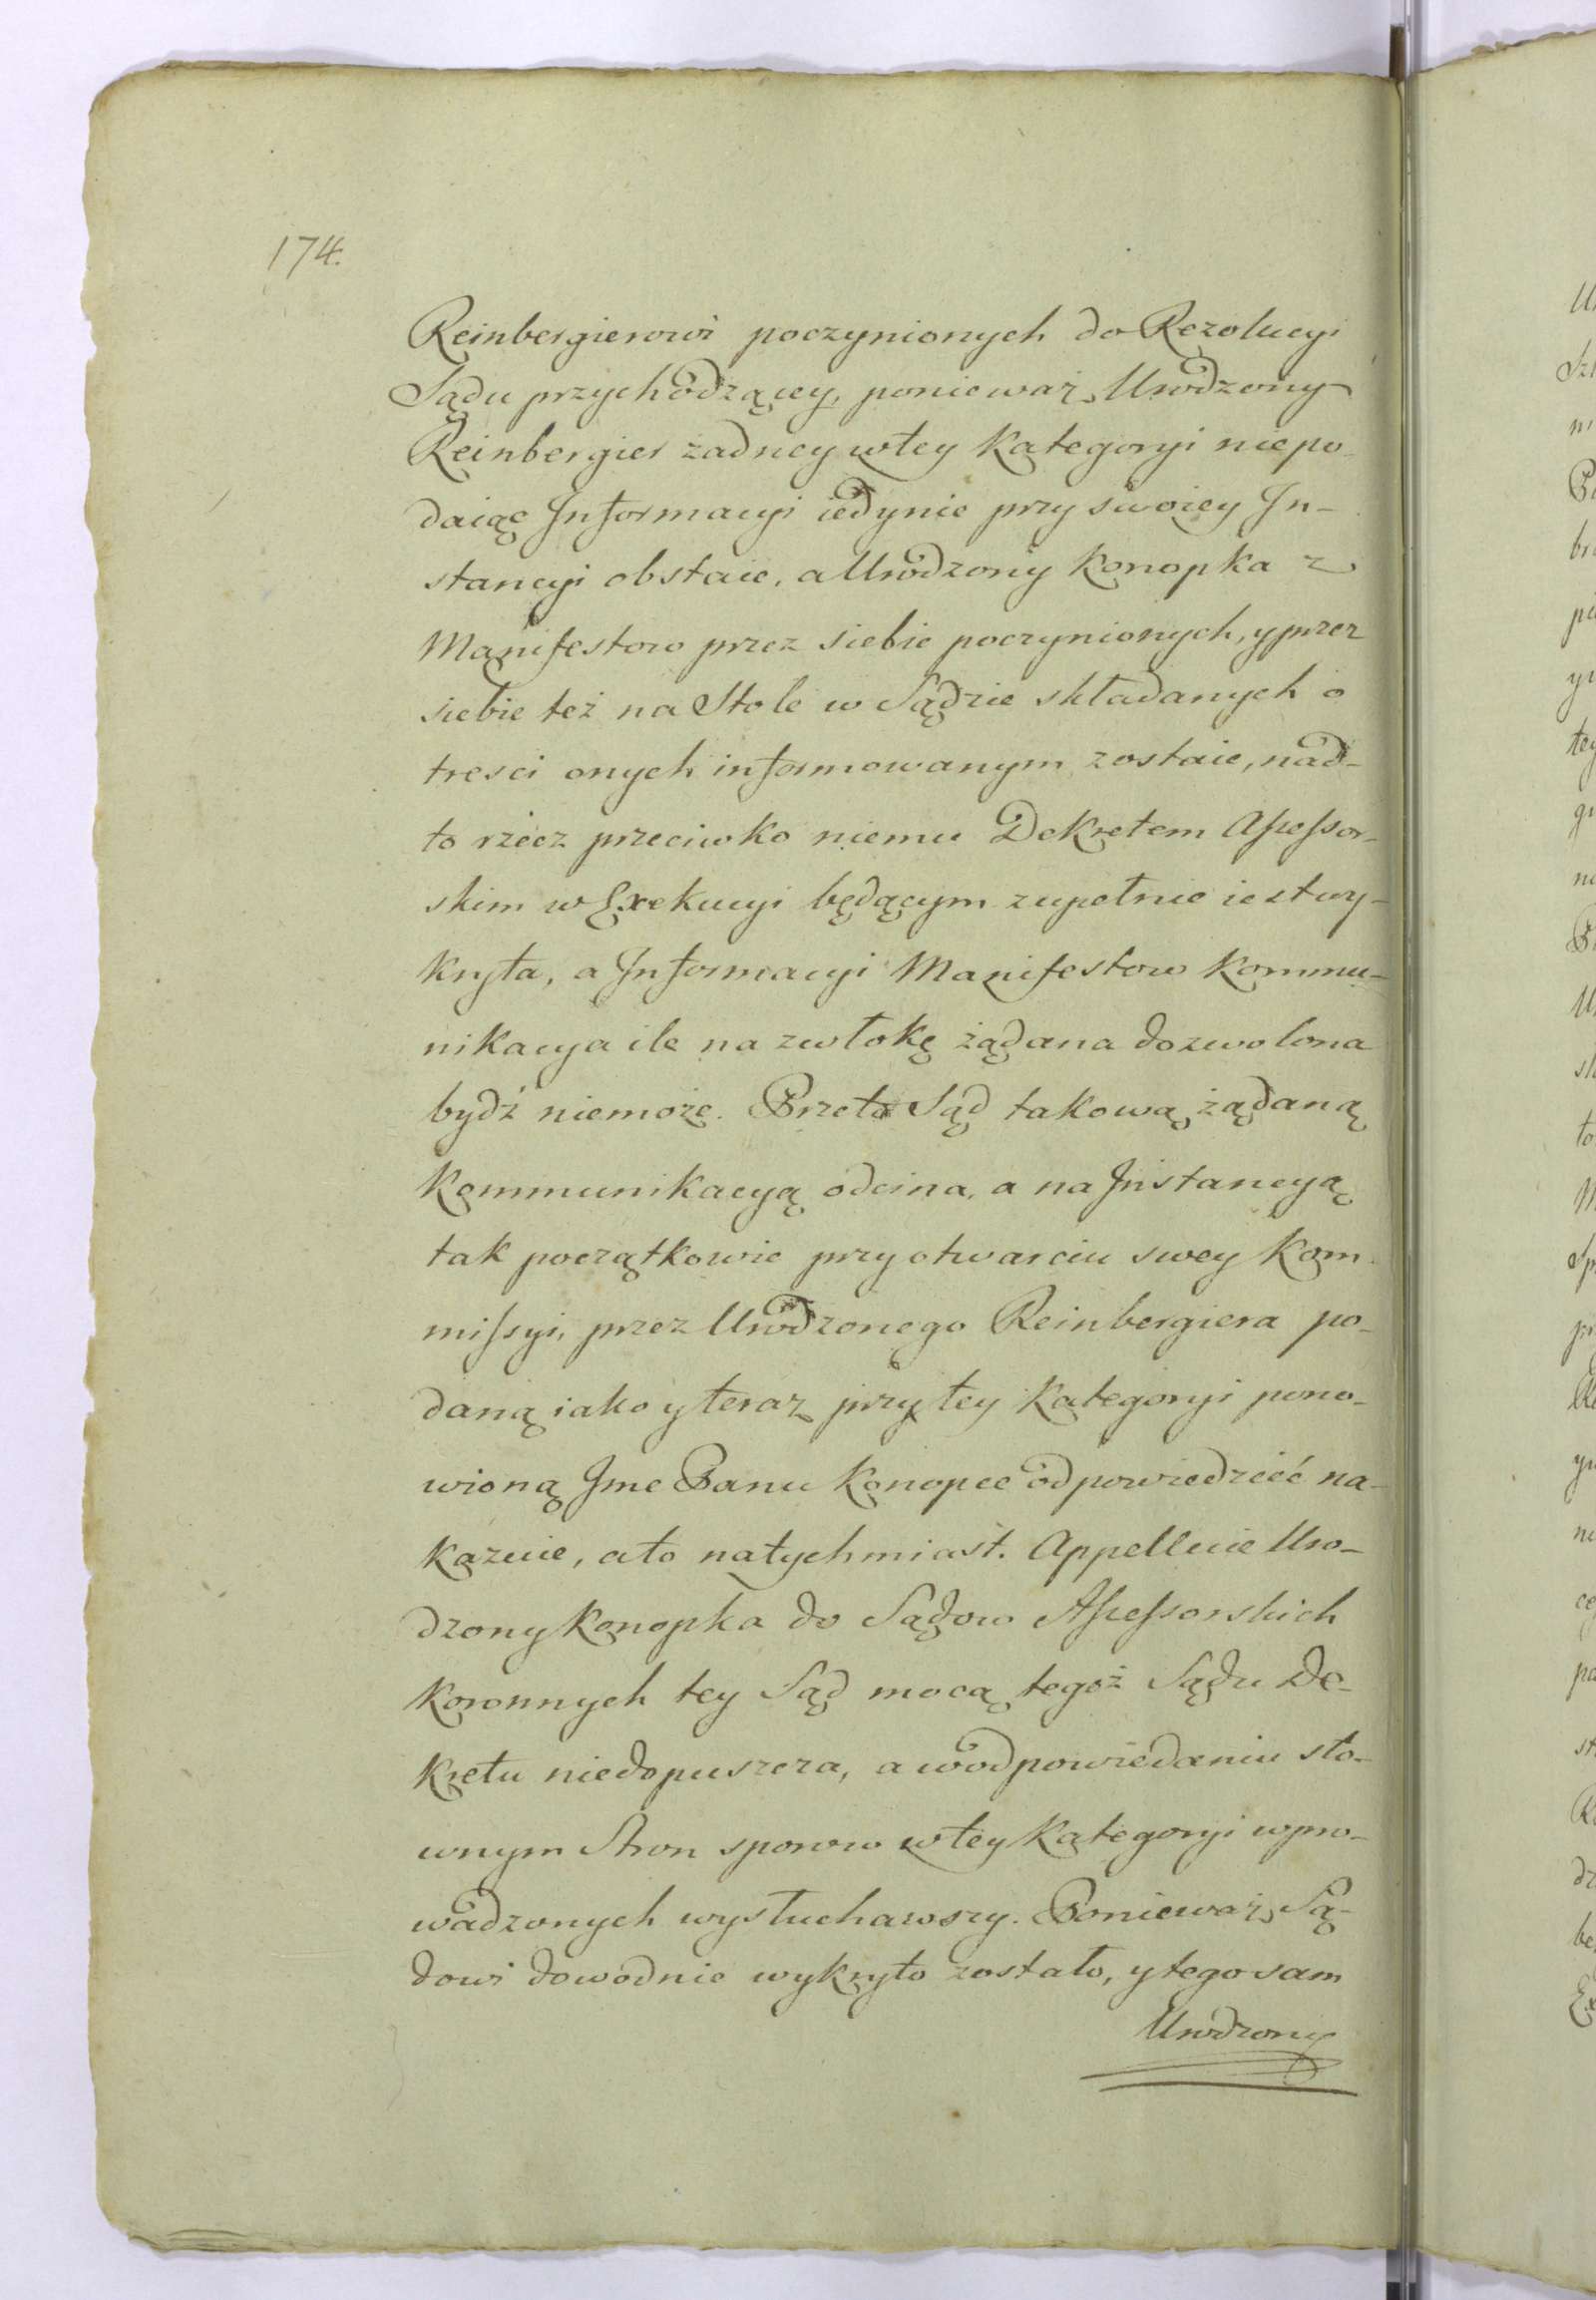 174.
Reinbergierowi poczynionych do Rezolucyi
Sądu przychodzącey, ponieważ Urodzony
Reinbergier żadney wtey Kategoryi niepo-
daiąc Informacyi iedynie przy swoiey In-
stancyi obstaie, a Urodzony Konopka z
Manifestow przez siebie poczynionych, y przez
siebie też na Stole w Sądzie składanych o
tresci onych informowanym zostaie, nad-
to rzecz przeciwko niemu Dekretem Assessor-
skim w Exekucyi będącym zupełnie iest wy-
kryta, a Informacyi Manifestow Kommu-
nikacya ile na zwłokę żądana dozwolona
bydź niemoże. Przeto Sąd takową żądaną
Kommunikacyą odcina, a na Instancyą
tak początkowie przy otwarciu swey Kom-
missyi, przez Urodzonego Reinbergiera po-
daną iako y teraz przy tey Kategoryi pono-
wioną Jme Panu Konopce odpowiedzieć na-
kazuie, ato natychmiast. Appelluie Uro-
dzony Konopka do Sądow Assessorskich
Koronnych tey Sąd mocą tegoż Sądu De-
kretu niedopuszcza, a wodpowiedaniu sło-
wnym Stron sporow wtey Kategoryi wpro-
wadzonych wysłuchawszy. Ponieważ Są-
dowi dowodnie wykryto zostało, y tego sam
Urodzony